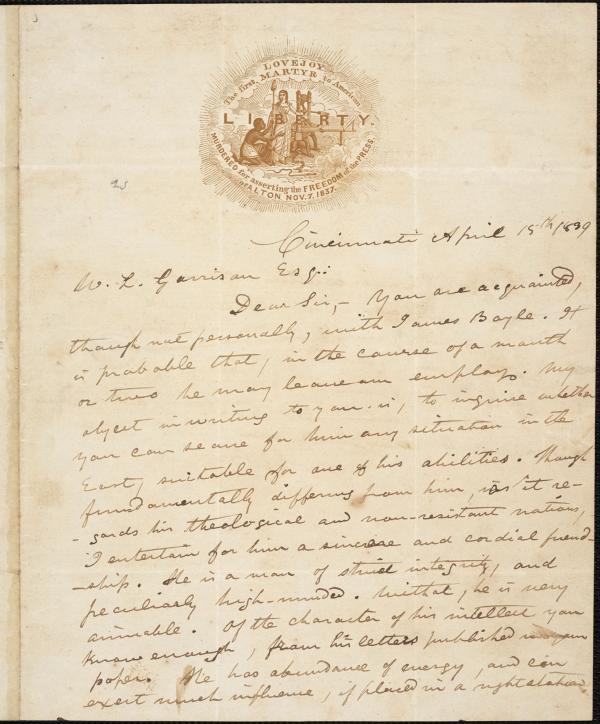 LOVEJOY
The first MARTYR to American
LIBERTY.
MURDERED for asserting the FREEDOM of the PRESS.
ALTON NOV. 7. 1837.
Cincinnati April 18th 1839
W. L. Garrison Esq:
Dear Sir,- You are acquainted,
though not personally, with James Boyle. It
is probable that, in the course of a month
or two he may leave our employ. My
object in writing to you is, to inquire whether
you can secure for him any situation in the
East, suitable for one of his abilities. Though
fundamentally differing from him, as it re-
-gards his theological and non-resistant notions,
I entertain for him a sincere and cordial friend-
-ship. He is a man of strict integrity, and
peculiarly high-minded. Withal, he is very
amiable. Of the character of his intellect you
know enough, from his letters published in your
paper. He has abundance of energy, and can
exert much influence, if placed in a right station